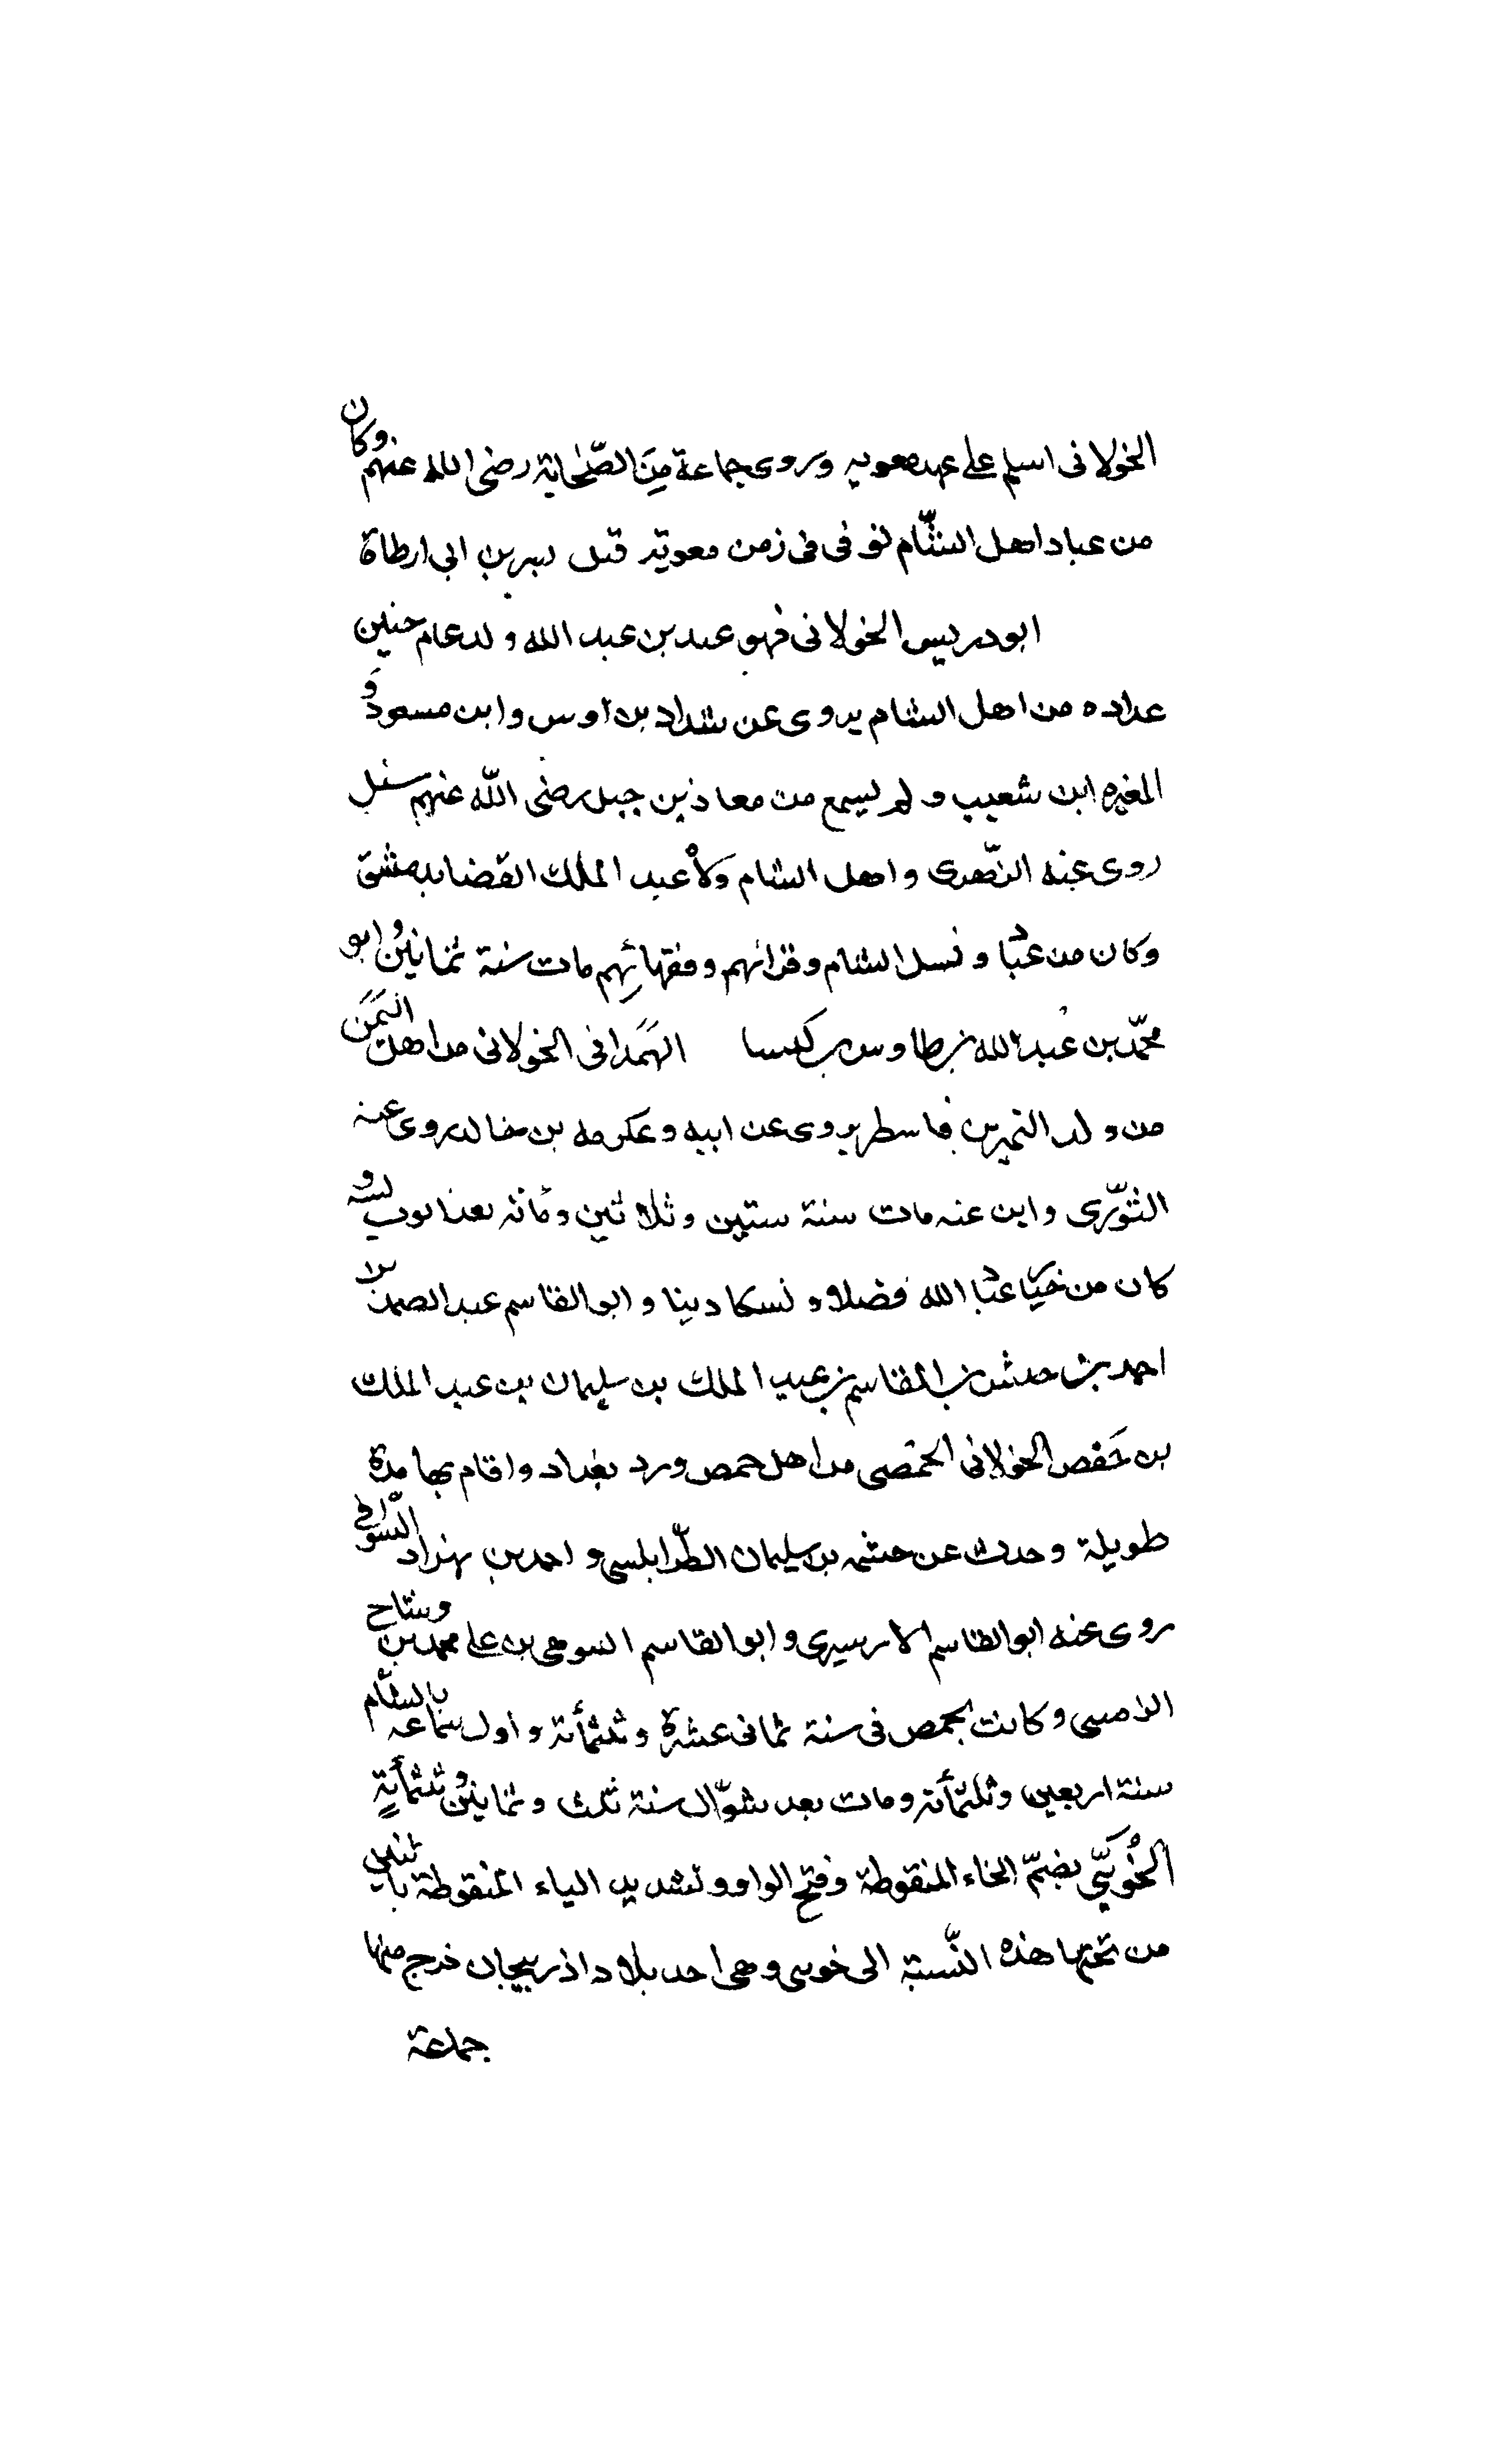 الخولانى اسلم على عهد معويه وروى جماعة مِنَ الصّحابة رضى الله عنهم وكان
من عباد اهل الشّام توفى فى زمن معوية قبل بسر بن ابى ارطاة
ابودريس الخولانى فهو عبد بن عبد الله ولد عام حنين
عداده من اهل الشام يروى عن شداد بن اوس وابن مسعود و
المغيره ابن شعيب ولم يسمع من معاذ بن جبل رضى الله عنهم سئل
روى عنه الزّهرى واهل الشام ولاّه عبد الملك القضا بدمشق
وكان من عبّاد ونسل الشام وقرائهم وفقهائهم مات سنة ثمانين وابو
محمّد بن عبد الله بن طاوس بن كيسا الهَمَدانى الخولانى من اهل اليَمَن
من ولد النمر بن قاسط يروى عن ابيه وعكرمه بن خالد روى عنه
الثّورى وابن عنه مات سنة ستين وثلاثين ومائة بعد ايوب بسنه و
كان من خيار عبّاد الله فضلا ونسكا دينا وابو القاسم عبد الصمد بن
احمد بن حنش بن القاسم بن عبد الملك بن سليمان بن عبد الملك
بن حَفص الخولانى الحمصى من اهل حمص ورد بغداد واقام بها مدة
طويلة وحدث عن خثيمه بن سليمان الطّرابلسى واحمد بن بهزاد السّوافى
روى عنه ابو القاسم الازهرى وابو القاسم التنوخى بن على محمد بن وشاح
الزينبى وكانت بحمص فى سنة ثمانى عشرة وثلثمأئة واول سماعه بالشّام
سنة اربعين وثلثمأئة ومات بعد شوّال سنة ثلث وثمانين وثلثمأيةٍ
الخُوَيّى بضمّ الخاء المنقوطة وفتح الواو وتشديد الياء المنقوطة باثنين
من تحتها هذه النّسبة الى خوى وهى احد بلاد اذربيجان خرج منها
جماعة